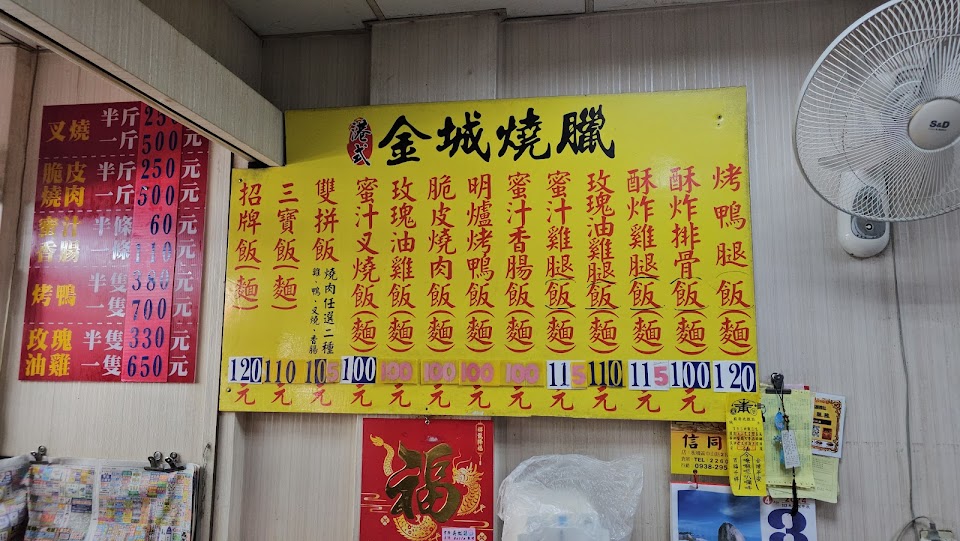 港式
金城燒臘
烤鴨腿飯(麵) 120元
酥炸排骨飯(麵) 100元
酥炸雞腿飯(麵) 115元
玫瑰油雞腿飯(麵) 110元
蜜汁雞腿飯(麵) 115元
蜜汁香腸飯(麵) 100元
明爐烤鴨飯(麵) 100元
脆皮燒肉飯(麵) 100元
玫瑰油雞飯(麵) 100元
蜜汁叉燒飯(麵) 100元
雙拼飯 燒肉任選二種
雞、鴨、叉燒、香腸 105元
三寶飯(麵) 110元
招牌飯(麵) 120元
叉燒
半斤 250元
一斤 500元
脆皮燒肉
半斤 250元
一斤 500元
蜜汁香腸
半條 60元
一條 110元
烤鴨
半隻 380元
一隻 700元
玫瑰油雞
半隻 330元
一隻 650元
S&D
福
信同
0938-295
3